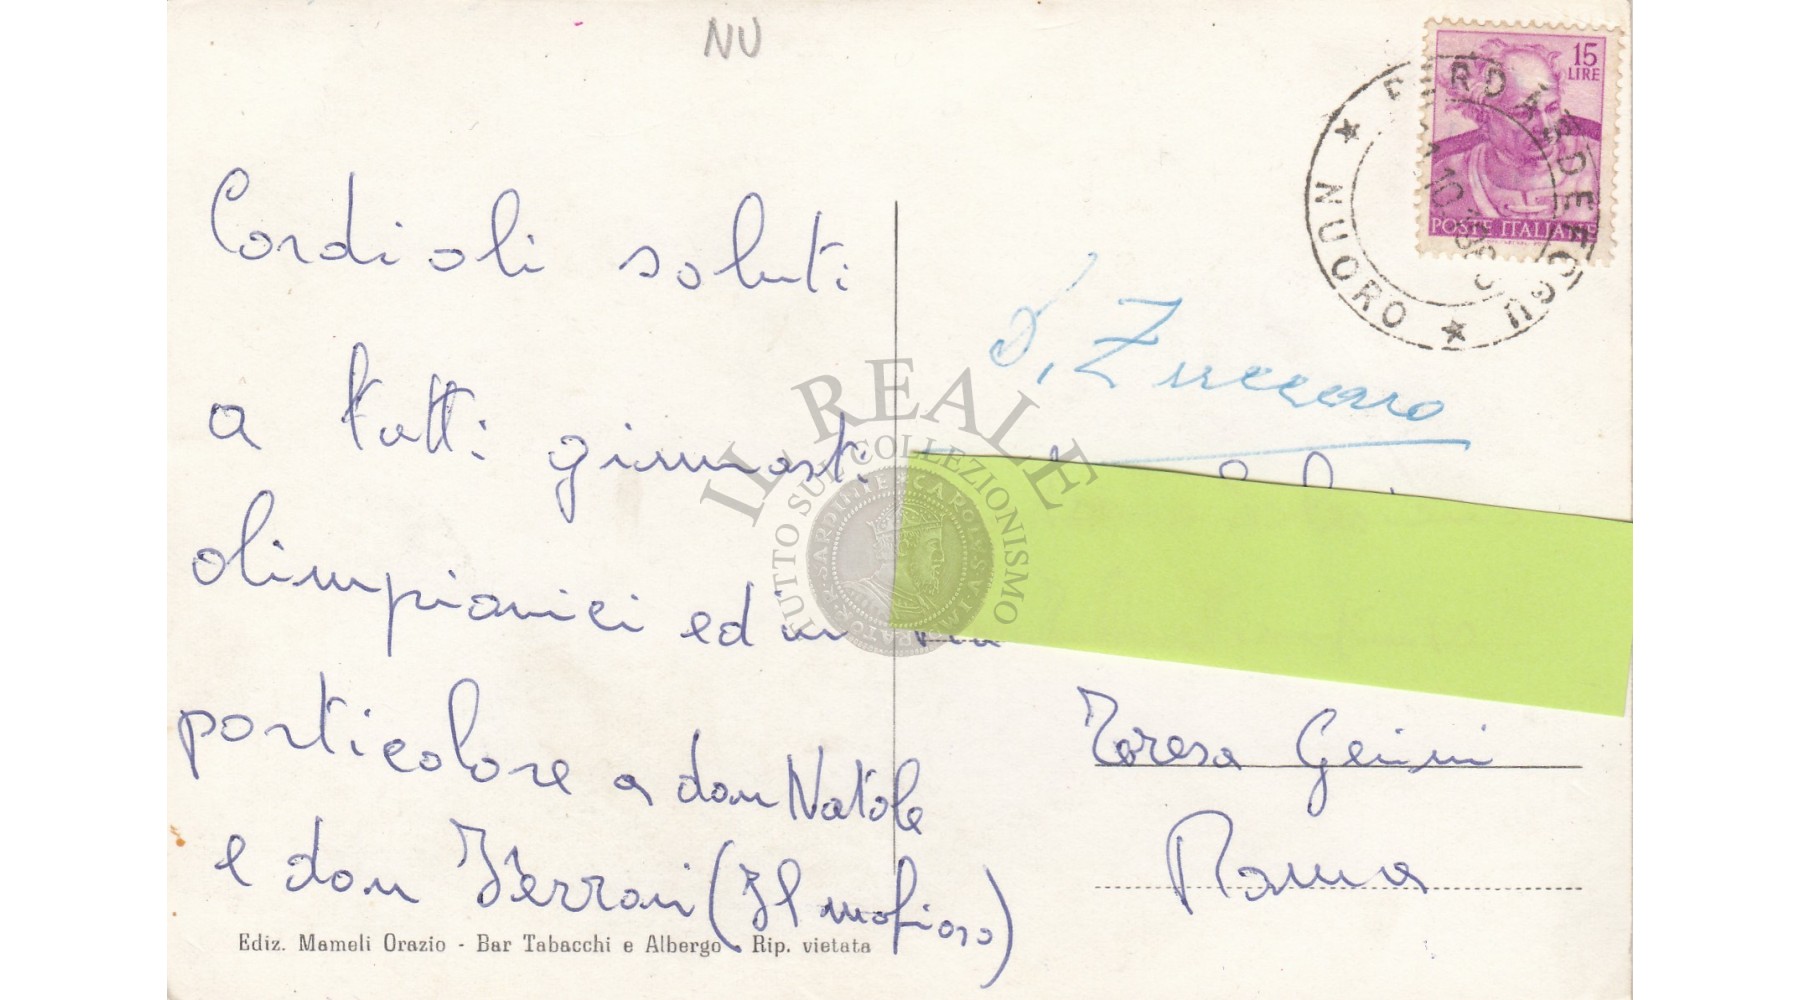 NU
15
LIRE
POSTE ITALIANE
PERDASDEFOGU
★ NUORO ★
10
Cordiali saluti
a tutti ginnasti
olimpionici ed in
particolare a don Natale
e don Ferrari (Il mafioso)
Zuccaro
Teresa Gerini
Roma
IL REALE
TUTTO SUL COLLEZIONISMO
Ediz. Mameli Orazio - Bar Tabacchi e Albergo - Rip. vietata